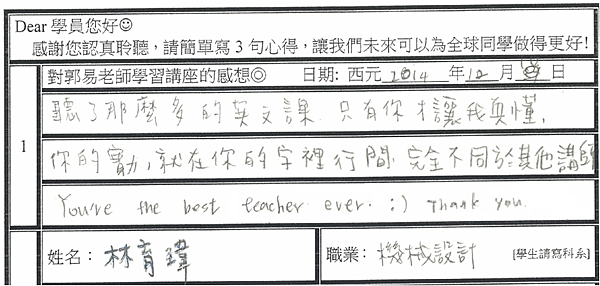 Dear 學員您好☺
感謝您認真聆聽，請簡單寫 3 句心得，讓我們未來可以為全球同學做得更好!
對郭易老師學習講座的感想◎ 日期: 西元 2014 年 12 月 日
1
聽了那麼多的英文課，只有你才讓我真懂，
你的實力，就在你的字裡行間 完全不同於其他講師
You're the best teacher ever. :) Thank you.
姓名： 林育瑋 職業： 機械設計 [學生請寫科系]